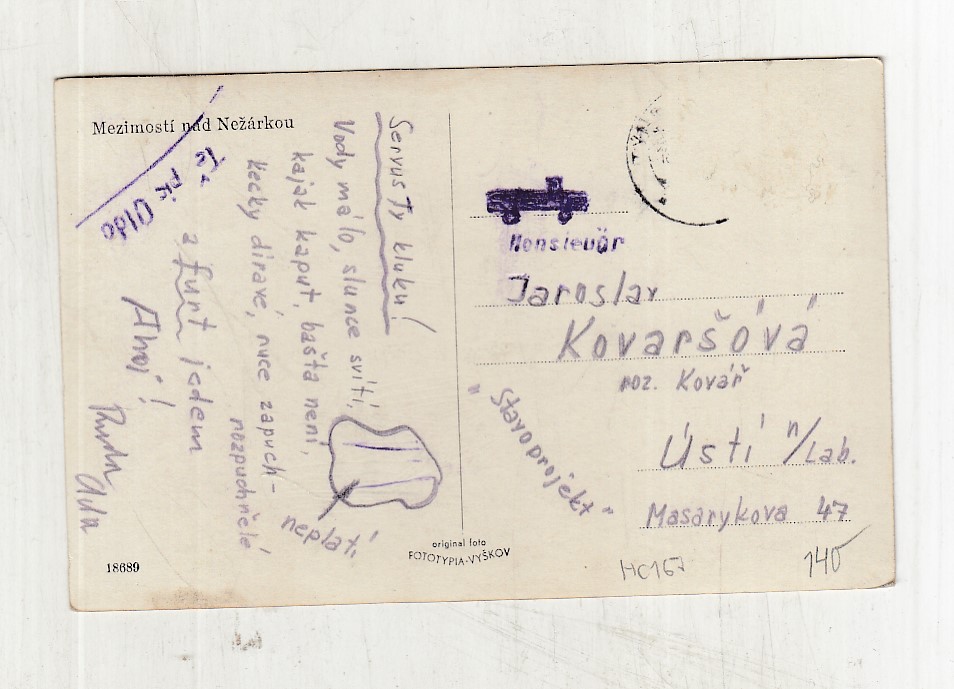 Mezimostí nad Nežárkou
Servus Ty kluku!
Vody málo, slunce svítí,
kajak kaput, bašta není,
kecky diravé, ruce zapuch-
rozpuchřelé
neplatí
a furt jedem
Ahoj!
Ruda
Tě pic Olda
18689
original foto
FOTOTYPIA-VYŠKOV
Monsieuär
Jaroslav
Kovaršóvá
roz. Kovář
"Stavoprojekt"
Ústí n/Lab.
Masarykova 47
HC167
140